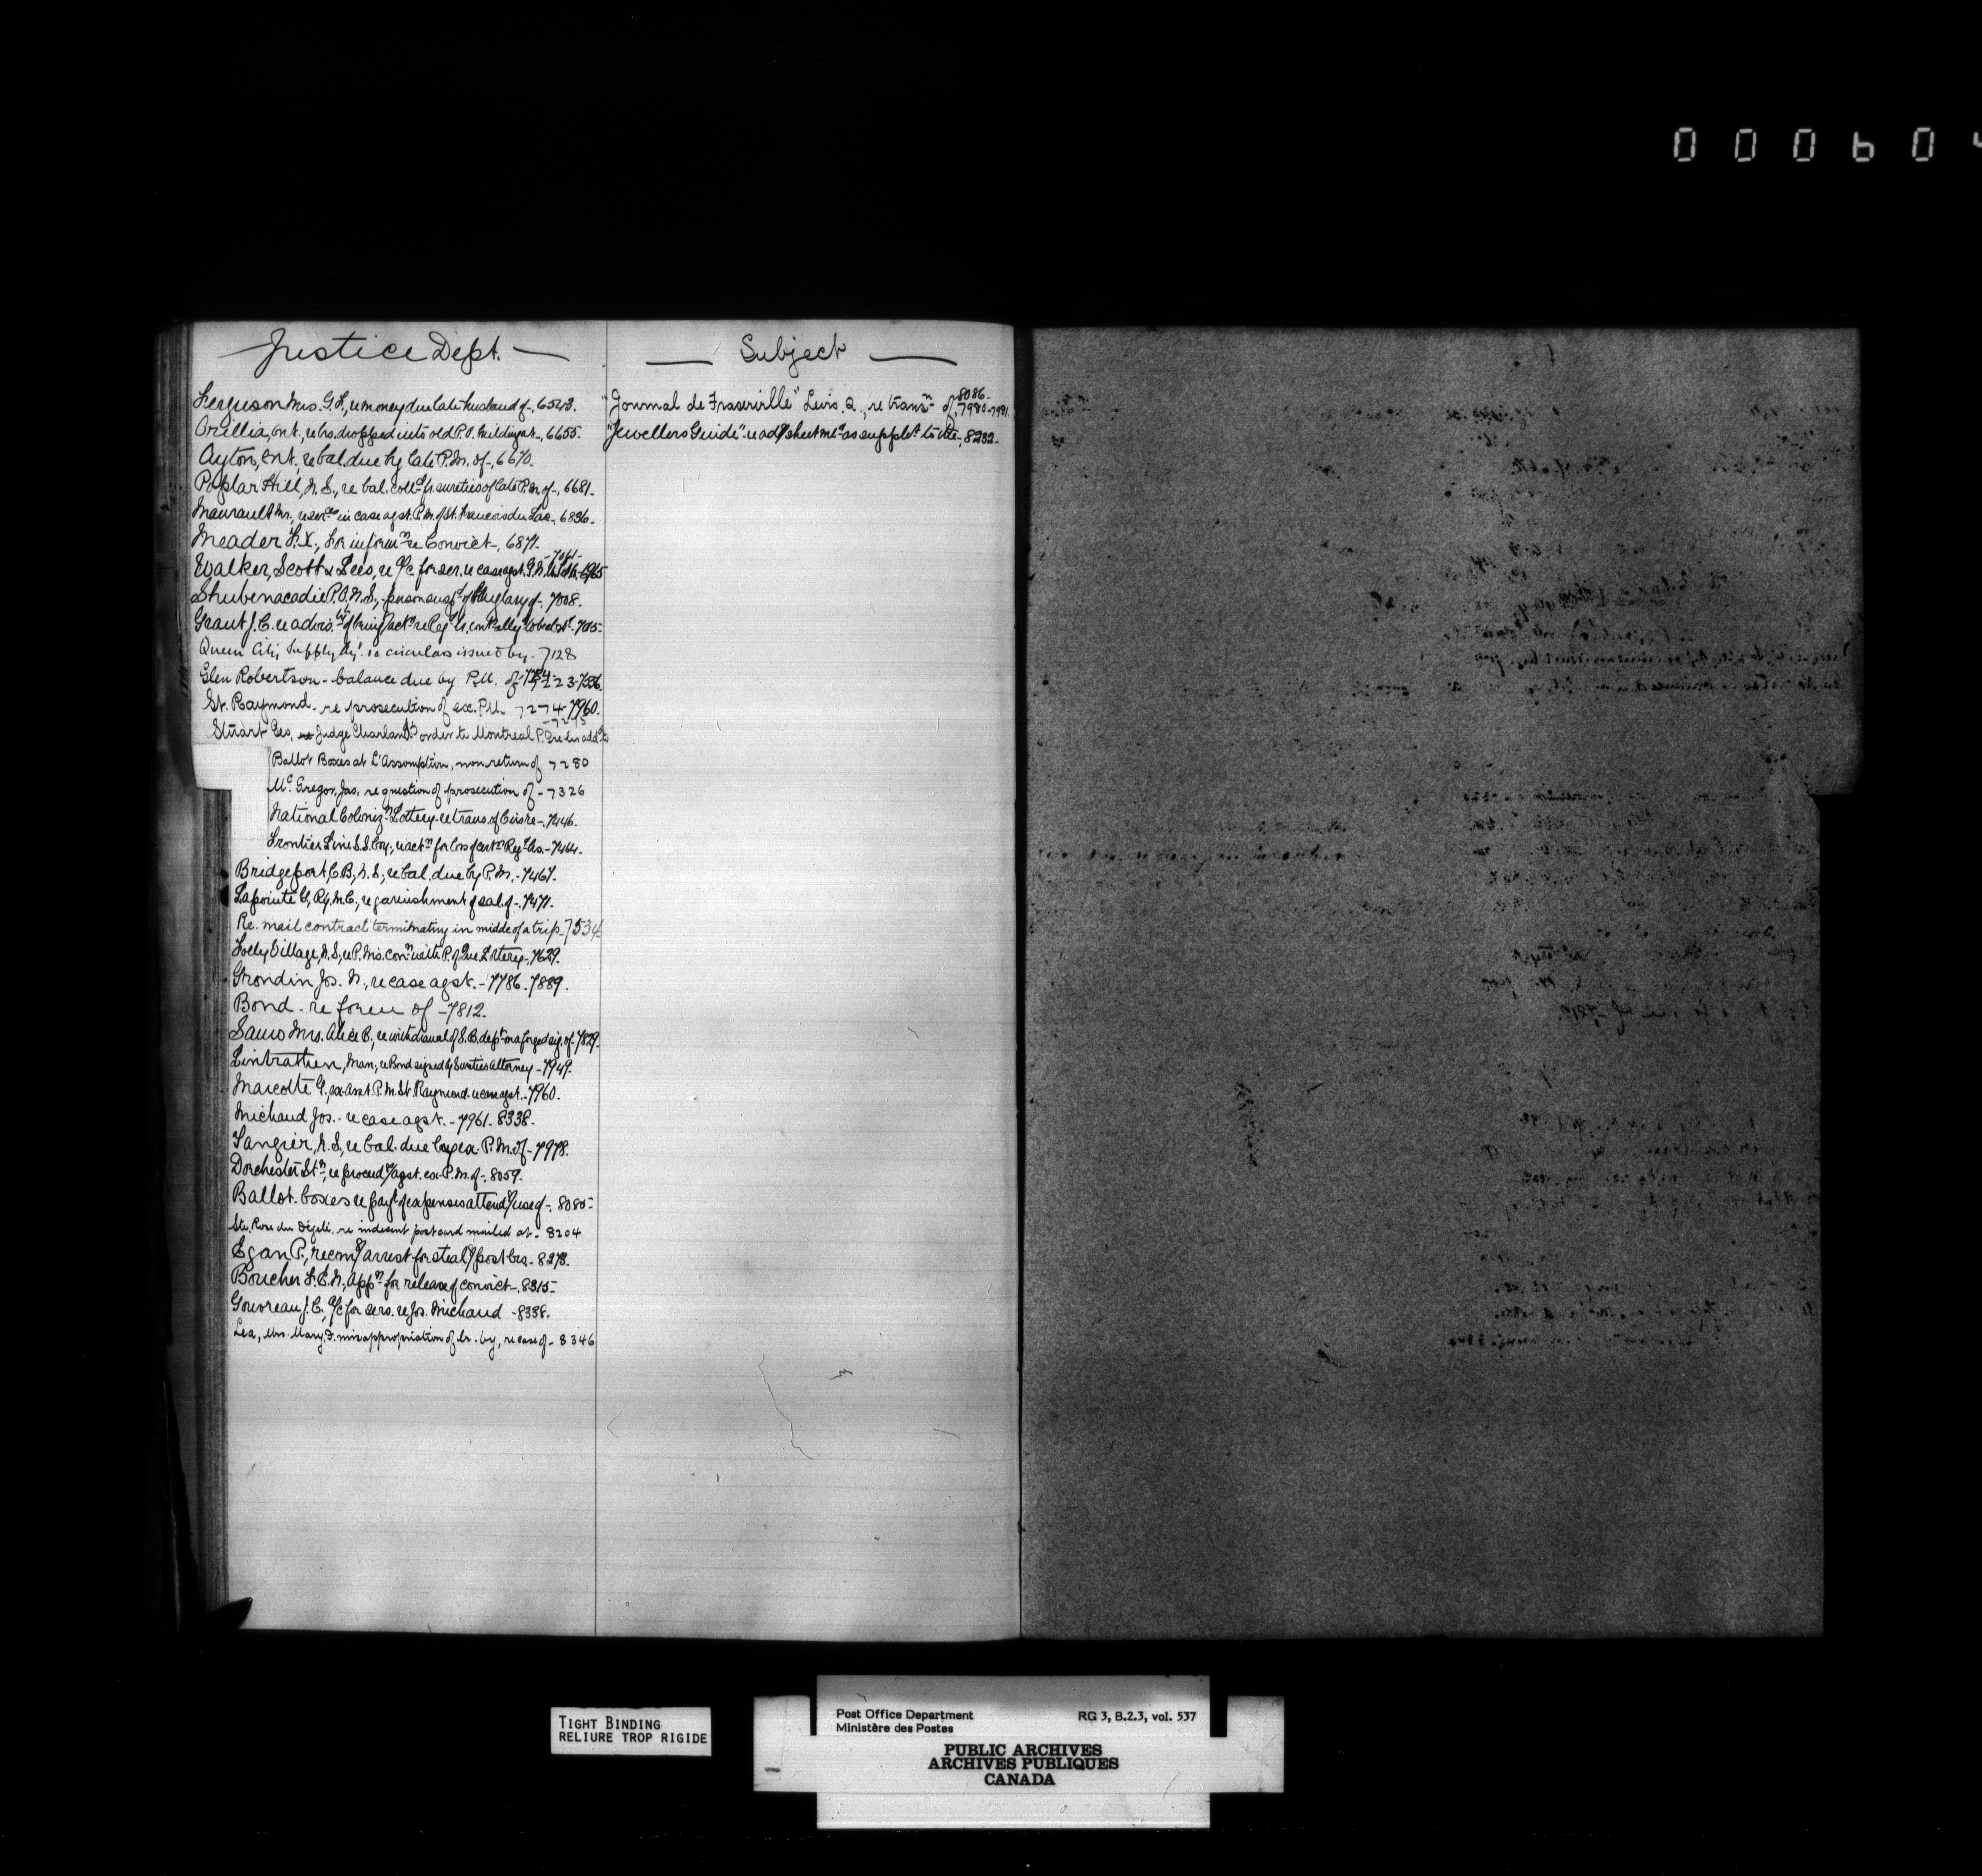 000604
Justice Dept.
Ferguson Mrs. G. F., re money due late husband of -, 6543.
Orillia, Ont., re lrs. dropped into old P.O. building at -, 6655.
Ayton, Ont., re bal. due by late P.M. of -, 6670.
Poplar Hill, N.S., re bal. coll.d fr. sureties of late P.M. of -, 6681.
Maurault Mr., re serces in case agst. P.M. of St. Francois du Lac -, 6836.
Meader F.X., for informn re Convict -, 6871.
Walker, Scott & Lees, re a/c for ser. re case agst. -7061- 6965
Shubenacadie P.O. N.S., - person suspd of Burglary of -, 7008.
Grant J. C. re advis.ty of bring.g actn re Reg.d lr. 7015-
Queen City Supply Agy. re circulars issued by - 7128
Glen Robertson - balance due by P.M. of 7223-7336.
St. Raymond - re prosecution of ex. P.M. 7274-7960.
Stuart Geo. Judge Charland's order to Montreal P.O. re lrs add.d to -7275
Ballot Boxes at L'Assomption, non return of 7280
Mc. Gregor, Jas. re question of prosecution of - 7326
National Coloniz.n Lottery - re trans. of Circs re -, 7446.
Frontier Line S.S. Coy., re actn for loss of certn Reg.d lrs. - 7464.
Bridgeport, C.B., N.S., re bal. due by P.M. - 7467.
Lapointe G., Ry. M.C., re garnishment of sal. of -. 7471.
Re. mail contract terminating in midde of a trip - 7534
Folly Village, N.S., re P.M's. conn with P. of Que. Lottery -. 7629.
Grondin Jos. N., re case agst. - 7786. 7889.
Bond - re form of - 7812.
Samo Mrs. Alice B., re withdrawal of S.B. dept on a forged sig. of - 7829.
Lintrathen, Man., re Bond signed by Sureties Attorney - 7949.
Marcotte G., ex-asst. P.M. St. Raymond re case agst. - 7960.
Michaud Jos. - re case agst. - 7961. 8338.
Tangier, N.S., re bal. due by ex-P.M. of - 7978.
Dorchester Stn., re proceed.gs agst. ex-P.M. of -. 8059.
Ballot boxes re payt of expenses attend.g use of -. 8085-
Ste. Rose du Dégelé. re indecent post card mailed at - 8204
Egan P., recom.g arrest for steal.g post lrs - 8278.
Boucher F. E. N., appn for release of convict -. 8315-
Gouvreau J. C., a/c for sers. re Jos. Michaud - 8338.
Lea, Mrs. Mary F. misappropriation of lr. by, re case of - 8346
Subject
"Journal de Fraserville" Levis, Q., re transn of, 8086- 7980-7981
"Jewellers Guide" - re advg sheet as supplet to the -, 8232-
TIGHT BINDING
RELIURE TROP RIGIDE
Post Office Department RG 3, B.2.3, vol. 537
Ministère des Postes
PUBLIC ARCHIVES
ARCHIVES PUBLIQUES
CANADA